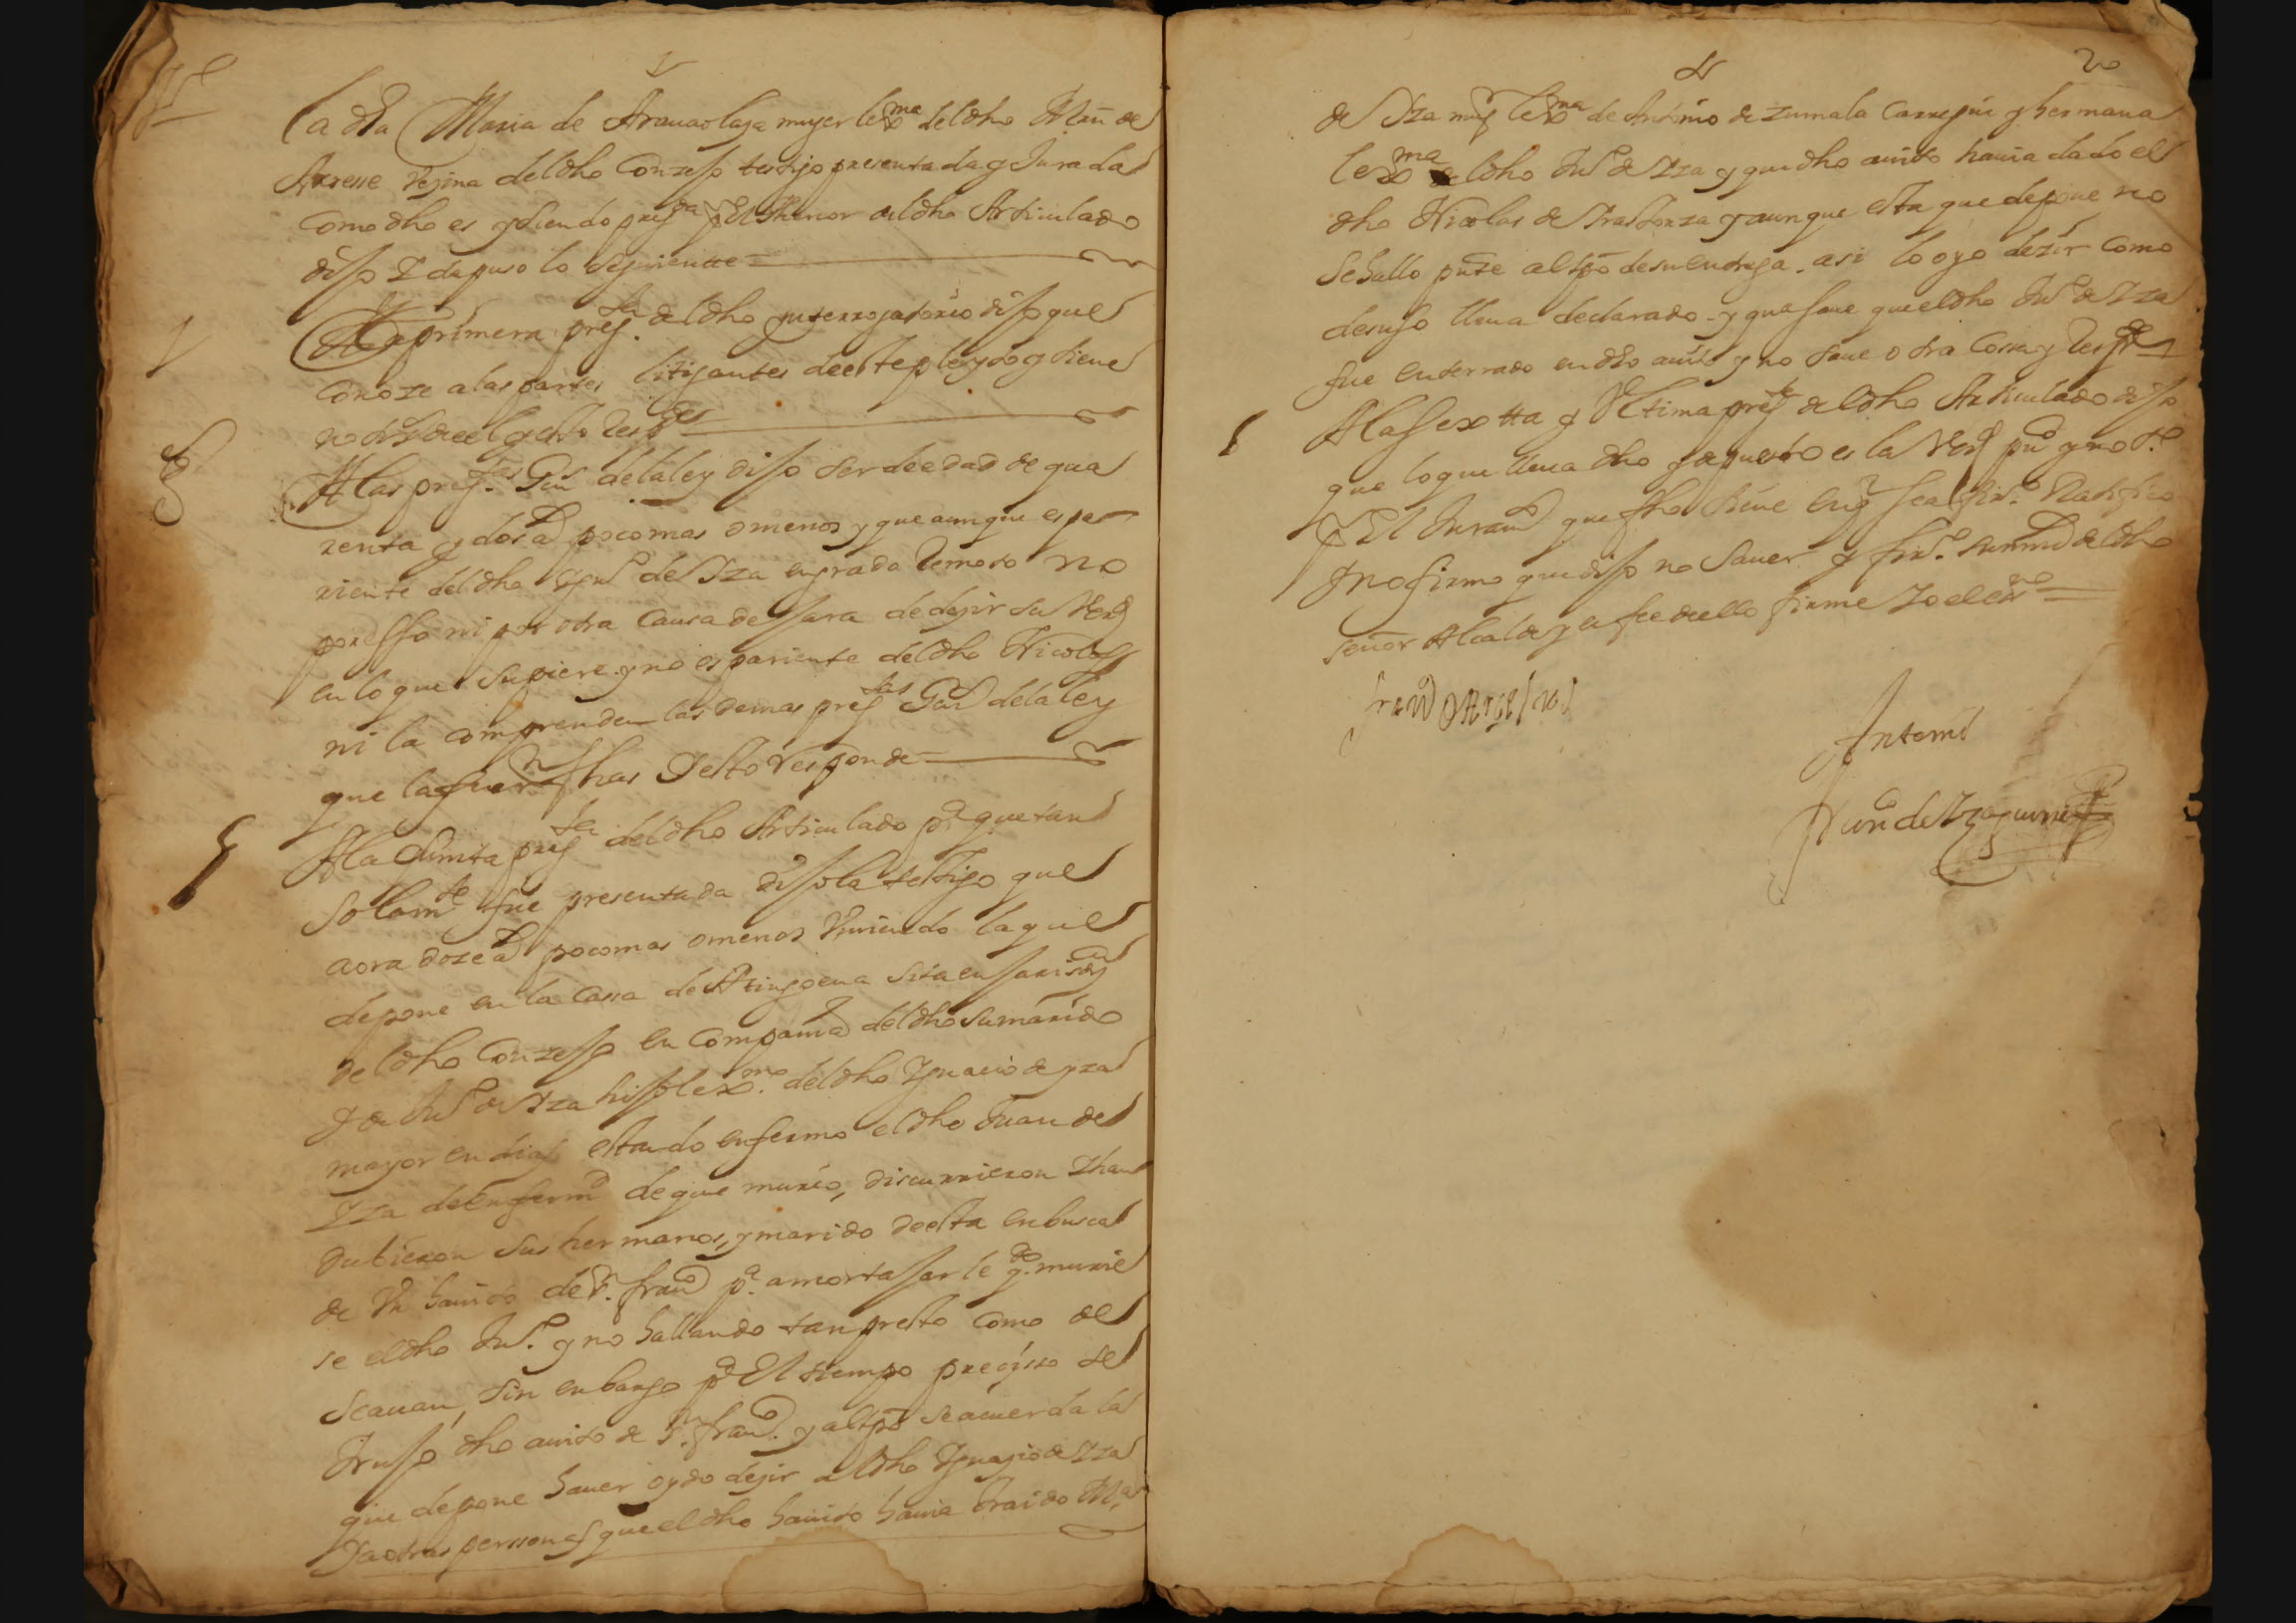 tt.º
La dha Maria de Aranaolaza muger lexma del dho Mrn de
Arrese vezina del dho Conzejo testigo presentada y Jurada
como dho es y siendo pregda p.r El thenor del dho Articulado
dijo Y depuso lo siguiente =
1
A la primera preg.ta del dho ynterrogatorio dijo que
conoze a las partes litigantes de este pleyto y tiene
notª de el y esto respde
A las preg.tas Gen.s de la ley dijo ser de edad de qua
renta y dos a.s poco mas o menos y que aunque es pa
riente del dho Ygn.º de Yza en grado remoto no
por esso ni por otra causa dejara de dezir la verd
en lo que supiere y no es pariente del dho Nicolas
ni la comprenden las demas pregtas Gen.s de la ley
que la fueron fhas Y esto responde =
5
A la quinta pregta del dho Articulado p.ª que tan
solamte fue presentada dijo la testigo que
aora doze a.s poco mas o menos viviendo la que
depone en la cassa de sita en jurisdon
del dho Conzejo en compañia del dho su marido
Y de Ju.º de Yza hijo lexmo. del dho Ygnacio de yza
mayor en dias estando enfermo el dho Juan de
Yza de la enfermd de que murio, discurrieron Y han
dubieron sus hermanos, y marido de esta en busca
de Un havito de S.n fran.co p.ª amortajarle q.do murie
se el dho Ju.º y no hallando tan presto como de
seauan, sin embargo p.r El tiempo precisso se
trujo dho auito de S.n fran.co y al tpo se acuerda la
que depone hauer oydo dezir al dho Ygnazio de Yza
Y a otras perssonas que el dho hauito hauia traido M.ª
20
de Yza mug.r lexma de Antonio de Zumala Carregui y hermana
lexma del dho Ju.º de Yza y que dho auito hauia dado el
dho Nicolas de Yrastorza y aunque esta que depone no
se hallo pnte al tpo de su entrega, asi lo oyo dezir como
desuso lleua declarado y que saue que el dho Ju.º de Yza
fue enterrado en dho auito y no saue otra cossa y respde
6
A la sexta y Ultima pregta del dho Articulado dijo
que lo que lleua dho y depuesto es la verd pu.ca y not.º
p.r El Juram.to que fho tiene en q. se afir.º Ratifico
Y no firmo que dijo no sauer y fir.º su md el dho
señor Alcalde y en fee de ello firme Yo el esno =
Antemi
Juan de Yzaguirre